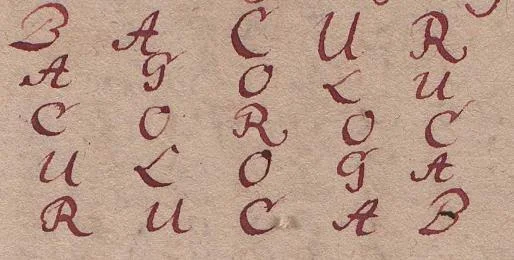 B A C U R
A G O L U
C O R O C
U L O G A
R U C A B